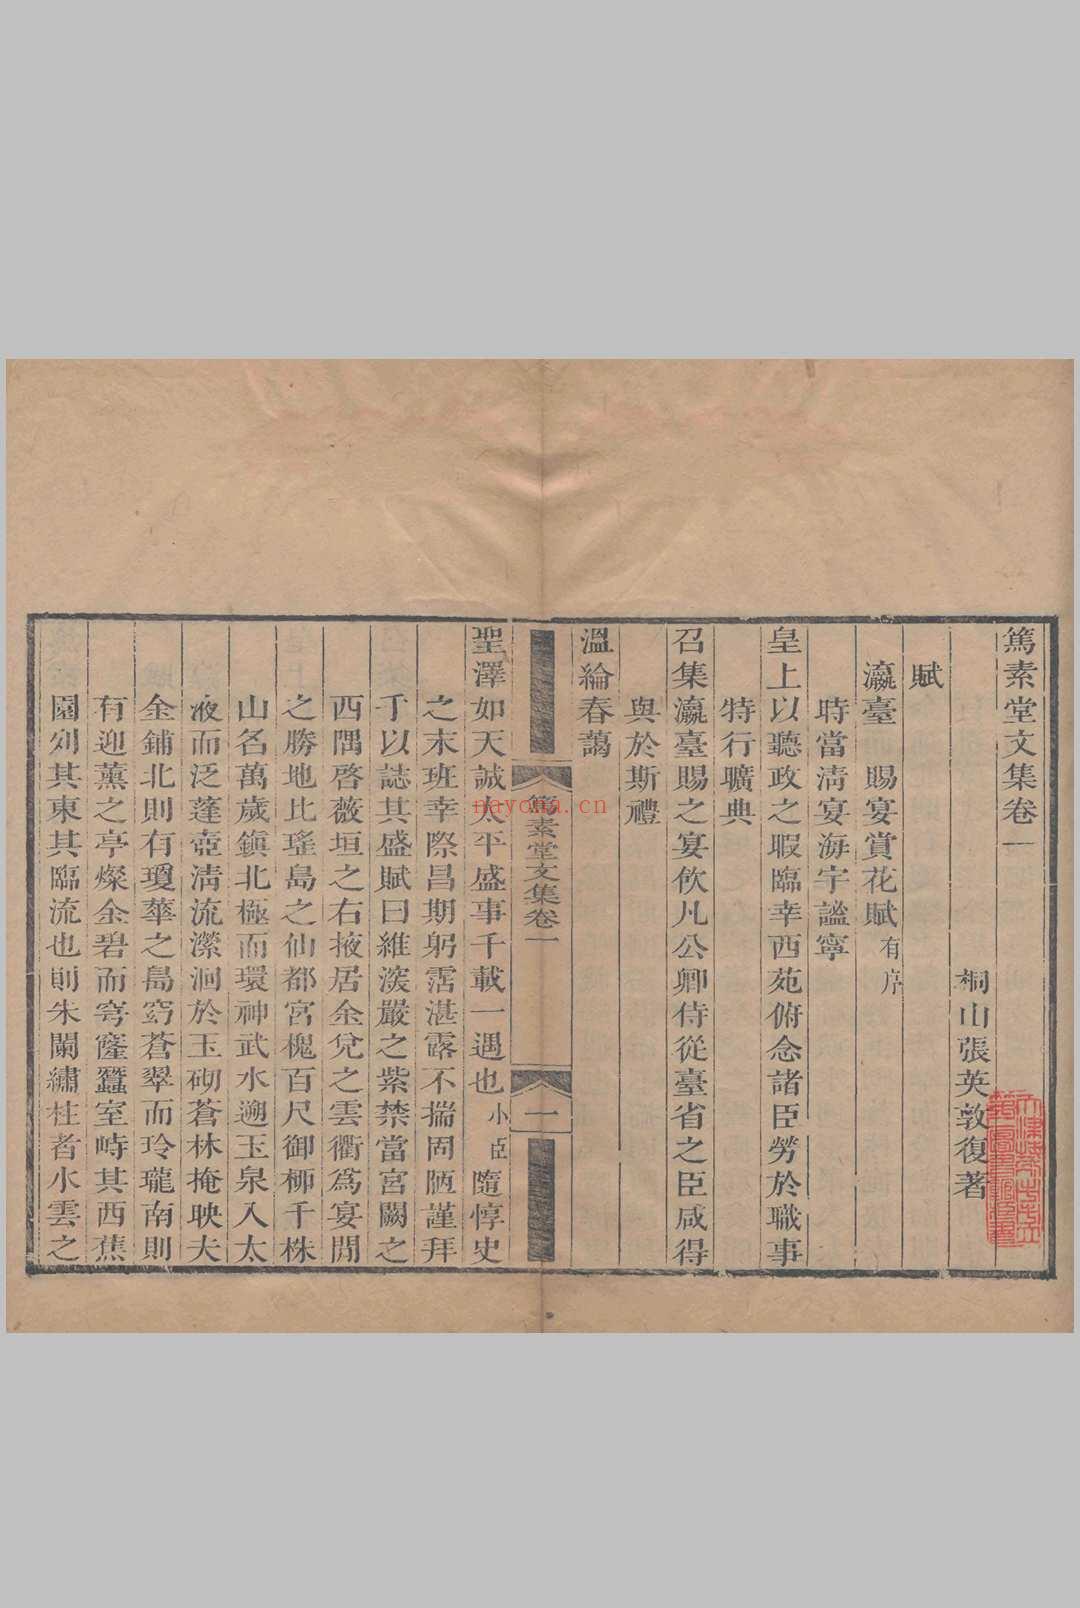 篤素堂文集卷一
桐山張英敦復著
賦
瀛臺 賜宴賞花賦有序
時當淸宴海宇謐寧
皇上以聽政之暇臨幸西苑俯念諸臣勞於職事
特行曠典
召集瀛臺賜之宴飲凡公卿侍從臺省之臣咸得
與於斯禮
溫綸春藹
篤素堂文集卷一
一
聖澤如天誠太平盛事千載一遇也小臣隨惇史
之末班幸際昌期躬霑湛露不揣固陋謹拜
手以誌其盛賦曰維淡嚴之紫禁當宮闕之
西隅啓薇垣之右掖居金兌之雲衢爲宴閒
之勝地比瑤島之仙都宮槐百尺御柳千株
山名萬歲鎭北極而環神武水遡玉泉入太
液而泛蓬壺淸流瀠洄於玉砌蒼林掩映夫
金鋪北則有瓊華之島窈蒼翠而玲瓏南則
有迎薰之亭燦金碧而穹窿蠶室峙其西蕉
園列其東其臨流也則朱闌繡柱者水雲之
nayona.cn